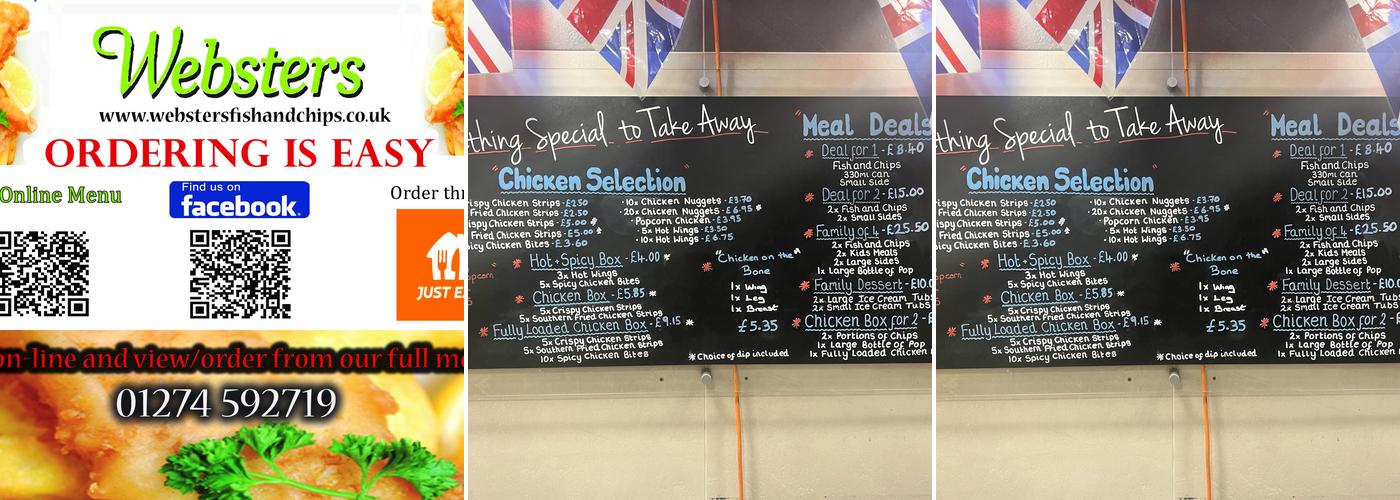 Websters
www.webstersfishandchips.co.uk
ORDERING IS EASY
Online Menu
Find us on
facebook.
Order thr
JUST EA
on-line and view/order from our full me
01274 592719
thing Special to Take Away
"Chicken Selection"
ispy Chicken Strips - £2.50
Fried Chicken Strips - £2.50
ispy Chicken Strips - £5.00 *
Fried Chicken Strips - £5.00 *
icy Chicken Bites - £3.60
• 10x Chicken Nuggets - £3.70
• 20x Chicken Nuggets - £6.95 *
• Popcorn Chicken - £3.95
• 5x Hot Wings - £3.50
• 10x Hot Wings - £6.75
* Hot + Spicy Box - £4.00 *
3x Hot Wings
5x Spicy Chicken Bites
* Chicken Box - £5.85 *
5x Crispy Chicken Strips
5x Southern Fried Chicken Strips
* Fully Loaded Chicken Box - £9.15 *
5x Crispy Chicken Strips
5x Southern Fried Chicken Strips
10x Spicy Chicken Bites
* "Chicken on the"
Bone
1x Wing
1x Leg
1x Breast
£5.35
*Choice of dip included
"Meal Deals
* Deal for 1 - £8.40
Fish and Chips
330ml Can
Small Side
* Deal for 2 - £15.00
2x Fish and Chips
2x Small Sides
* Family of 4 - £25.50
2x Fish and Chips
2x Kids Meals
2x Large Sides
1x Large Bottle of Pop
* Family Dessert - £10.0
2x Large Ice Cream Tubs
2x Small Ice Cream Tubs
* Chicken Box for 2 - £
2x Portions of Chips
1x Large Bottle of Pop
1x Fully Loaded Chicken
popcorn"
thing Special to Take Away
"Chicken Selection"
ispy Chicken Strips - £2.50
Fried Chicken Strips - £2.50
ispy Chicken Strips - £5.00 *
Fried Chicken Strips - £5.00 *
icy Chicken Bites - £3.60
• 10x Chicken Nuggets - £3.70
• 20x Chicken Nuggets - £6.95 *
• Popcorn Chicken - £3.95
• 5x Hot Wings - £3.50
• 10x Hot Wings - £6.75
* Hot + Spicy Box - £4.00 *
3x Hot Wings
5x Spicy Chicken Bites
* Chicken Box - £5.85 *
5x Crispy Chicken Strips
5x Southern Fried Chicken Strips
* Fully Loaded Chicken Box - £9.15 *
5x Crispy Chicken Strips
5x Southern Fried Chicken Strips
10x Spicy Chicken Bites
* "Chicken on the"
Bone
1x Wing
1x Leg
1x Breast
£5.35
*Choice of dip included
"Meal Deals
* Deal for 1 - £8.40
Fish and Chips
330ml Can
Small Side
* Deal for 2 - £15.00
2x Fish and Chips
2x Small Sides
* Family of 4 - £25.50
2x Fish and Chips
2x Kids Meals
2x Large Sides
1x Large Bottle of Pop
* Family Dessert - £10.0
2x Large Ice Cream Tubs
2x Small Ice Cream Tubs
* Chicken Box for 2 - £
2x Portions of Chips
1x Large Bottle of Pop
1x Fully Loaded Chicken
popcorn"